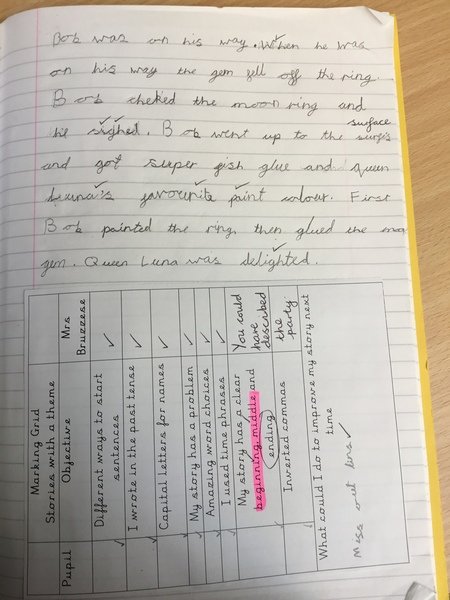 Bob was on his way. When he was
on his way the gem fell off the ring.
Bob cheked the moon ring and
he sighed. Bob went up to the surfis
surface
and got super fish glue and Queen
Luna's favourite paint colour. First
Bob painted the ring, then glued the
gem. Queen Luna was delighted.
Marking Grid
Stories with a theme
Pupil Objective Mrs Bruzzese
Different ways to start sentences ✓
I wrote in the past tense ✓
Capital letters for names ✓
My story has a problem ✓
Amazing word choices ✓
I used time phrases ✓
My story has a clear beginning, middle and ending You could have described the party.
Inverted commas
What could I do to improve my story next time
Miss out